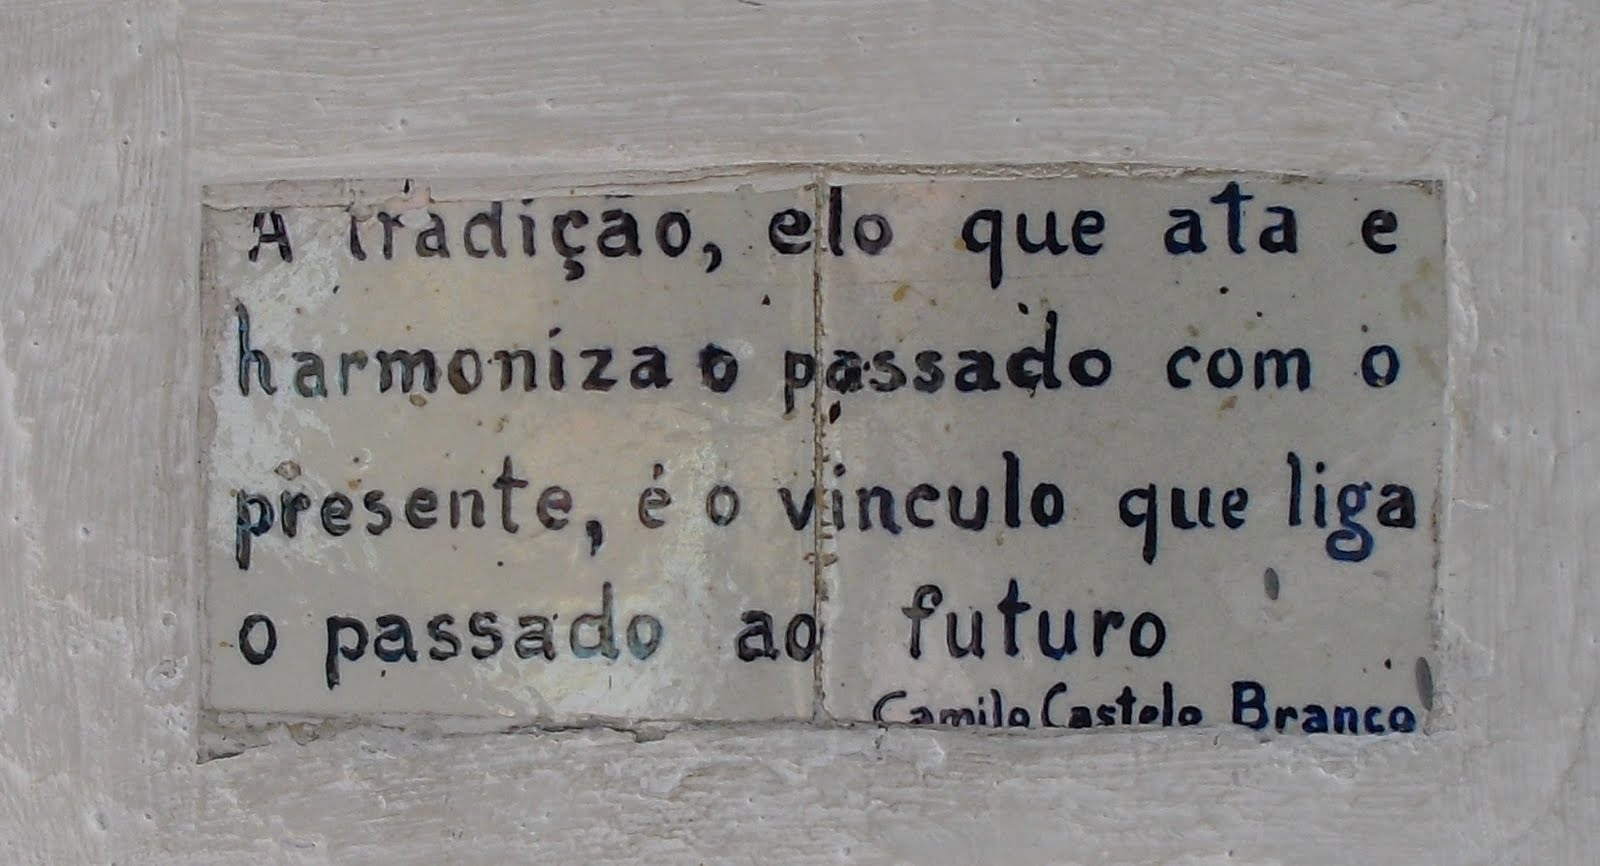 A tradição, elo que ata e
harmoniza o passado com o
presente, é o vínculo que liga
o passado ao futuro
Camilo Castelo Branco